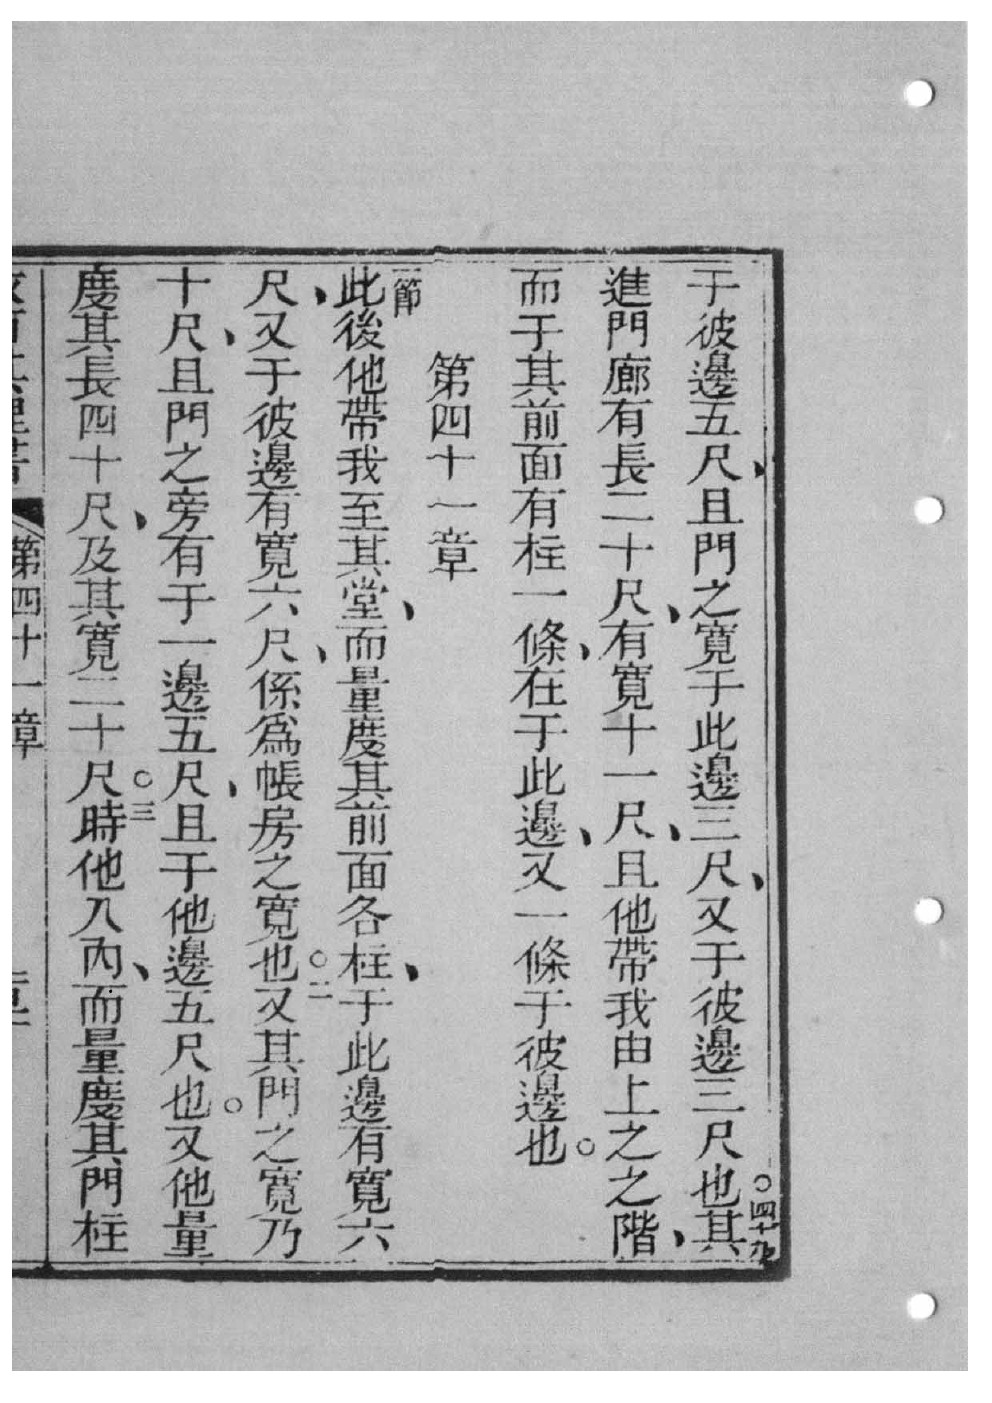 于彼邊五尺、且門之寬于此邊三尺、又于彼邊三尺也。四十九其
進門廊有長二十尺、有寬十一尺、且他帶我由上之之階、
而于其前面有柱一條、在于此邊、又一條于彼邊也。
第四十一章
一節此後他帶我至其堂、而量度其前面各柱、于此邊有寬六
尺、又于彼邊有寬六尺、係爲帳房之寬也。二又其門之寬乃
十尺、且門之旁有于一邊五尺、且于他邊五尺也。又他量
度其長四十尺、及其寬二十尺。三時他入內、而量度其門柱
第四十一章